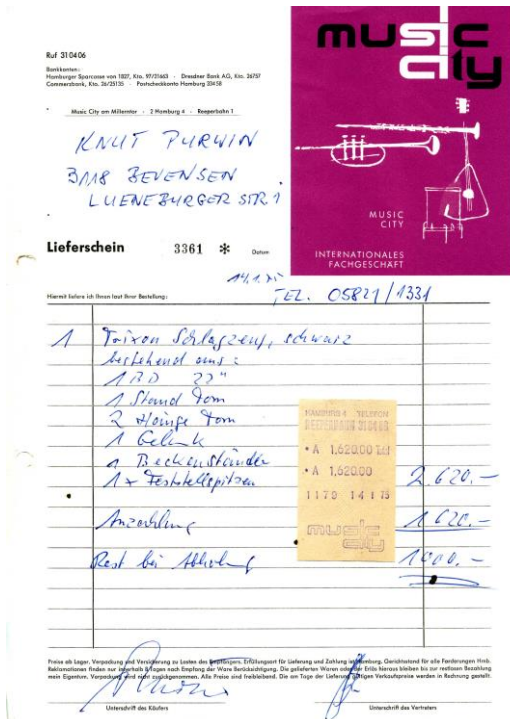 music
city
Ruf 310406
Bankkonten:
Hamburger Sparcasse von 1827, Kto. 97/21663 - Dresdner Bank AG, Kto. 26757
Commerzbank, Kto. 26/25135 - Postscheckkonto Hamburg 33458
Music City am Millerntor - 2 Hamburg 4 - Reeperbahn 1
KNUT PURWIN
3118 BEVENSEN
LUENEBURGER STR. 1
MUSIC
CITY
INTERNATIONALES
FACHGESCHÄFT
Lieferschein 3361 * Datum
14.1.75
TEL. 05821/1331
Hiermit liefere ich Ihnen laut Ihrer Bestellung:
1 Trixon Schlagzeug, schwarz
bestehend aus:
1 BD 22"
1 Stand Tom
2 Hänge Tom
1 Gelenk
1 Beckenständer
1 x Feststellspitzen 2.620.-
Anzahlung 1.620.-
Rest bei Abholung 1000.-
HAMBURG 4 TELEFON
REEPERBAHN 310406
• A 1,620.00
• A 1,620.00
1170 14 1 75
music
city
Preise ab Lager. Verpackung und Versicherung zu Lasten des Empfängers. Erfüllungsort für Lieferung und Zahlung ist Hamburg. Gerichtsstand für alle Forderungen Hmb.
Reklamationen finden nur innerhalb 8 Tagen nach Empfang der Ware Berücksichtigung. Die gelieferten Waren oder der Erlös hieraus bleiben bis zur restlosen Bezahlung
mein Eigentum. Verpackung wird nicht zurückgenommen. Alle Preise sind freibleibend. Die am Tage der Lieferung gültigen Verkaufspreise werden in Rechnung gestellt.
Unterschrift des Käufers Unterschrift des Vertreters